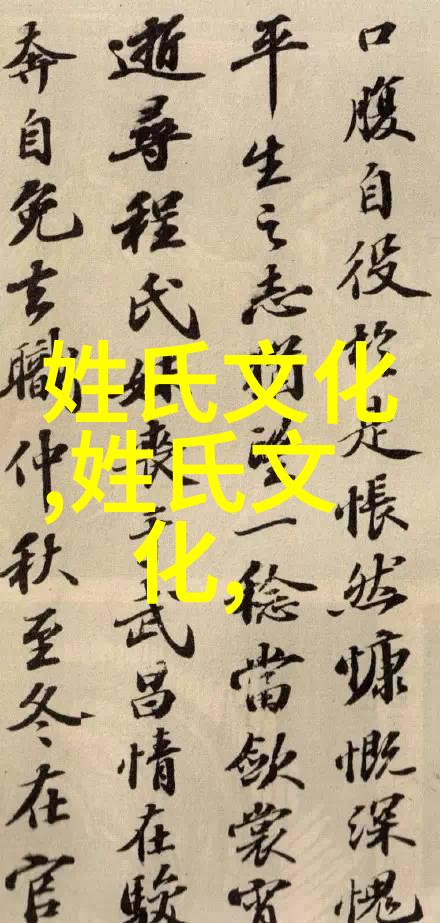 口腹自役於是悵然慷慨深愧
平生之志猶望一稔當斂裳宵
逝尋程氏妹喪于武昌情在駿
奔自免去職仲秋至冬在官
姓氏文化
,姓氏文
化,